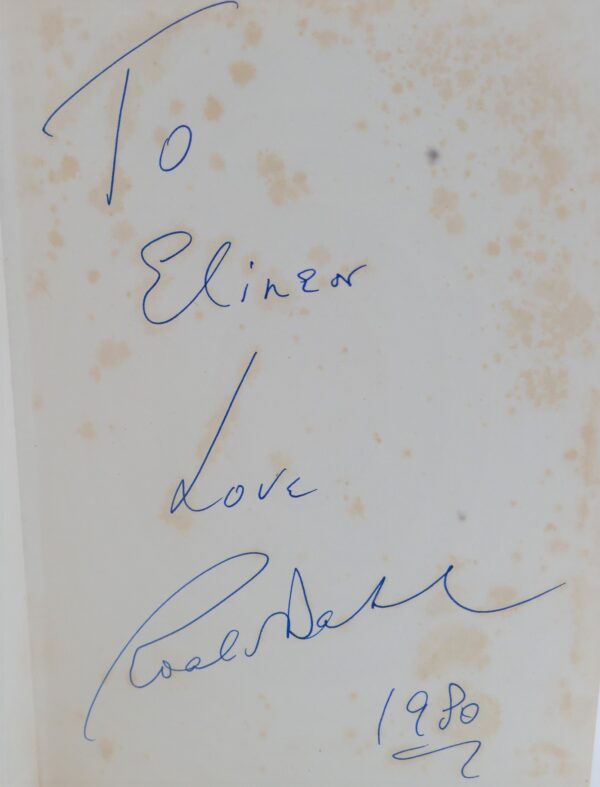 To
Elinor
Love
Roald Dahl
1980